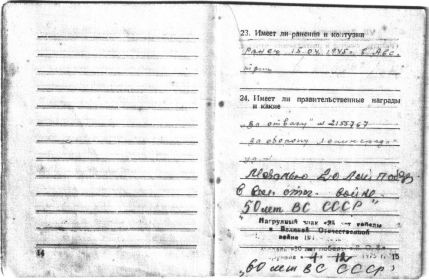 23. Имеет ли ранения и контузии
Ранен 15.04.1945 г. в Авс-
трии
24. Имеет ли правительственные награды
и какие
"За отвагу" № 2155767
За оборону Ленинграда
Медалью 20 лет победы
в вел. отеч. войне.
50 лет ВС СССР"
Нагрудный знак победы
в Великой Отечественной
войне
14
15
"60 лет ВС СССР"